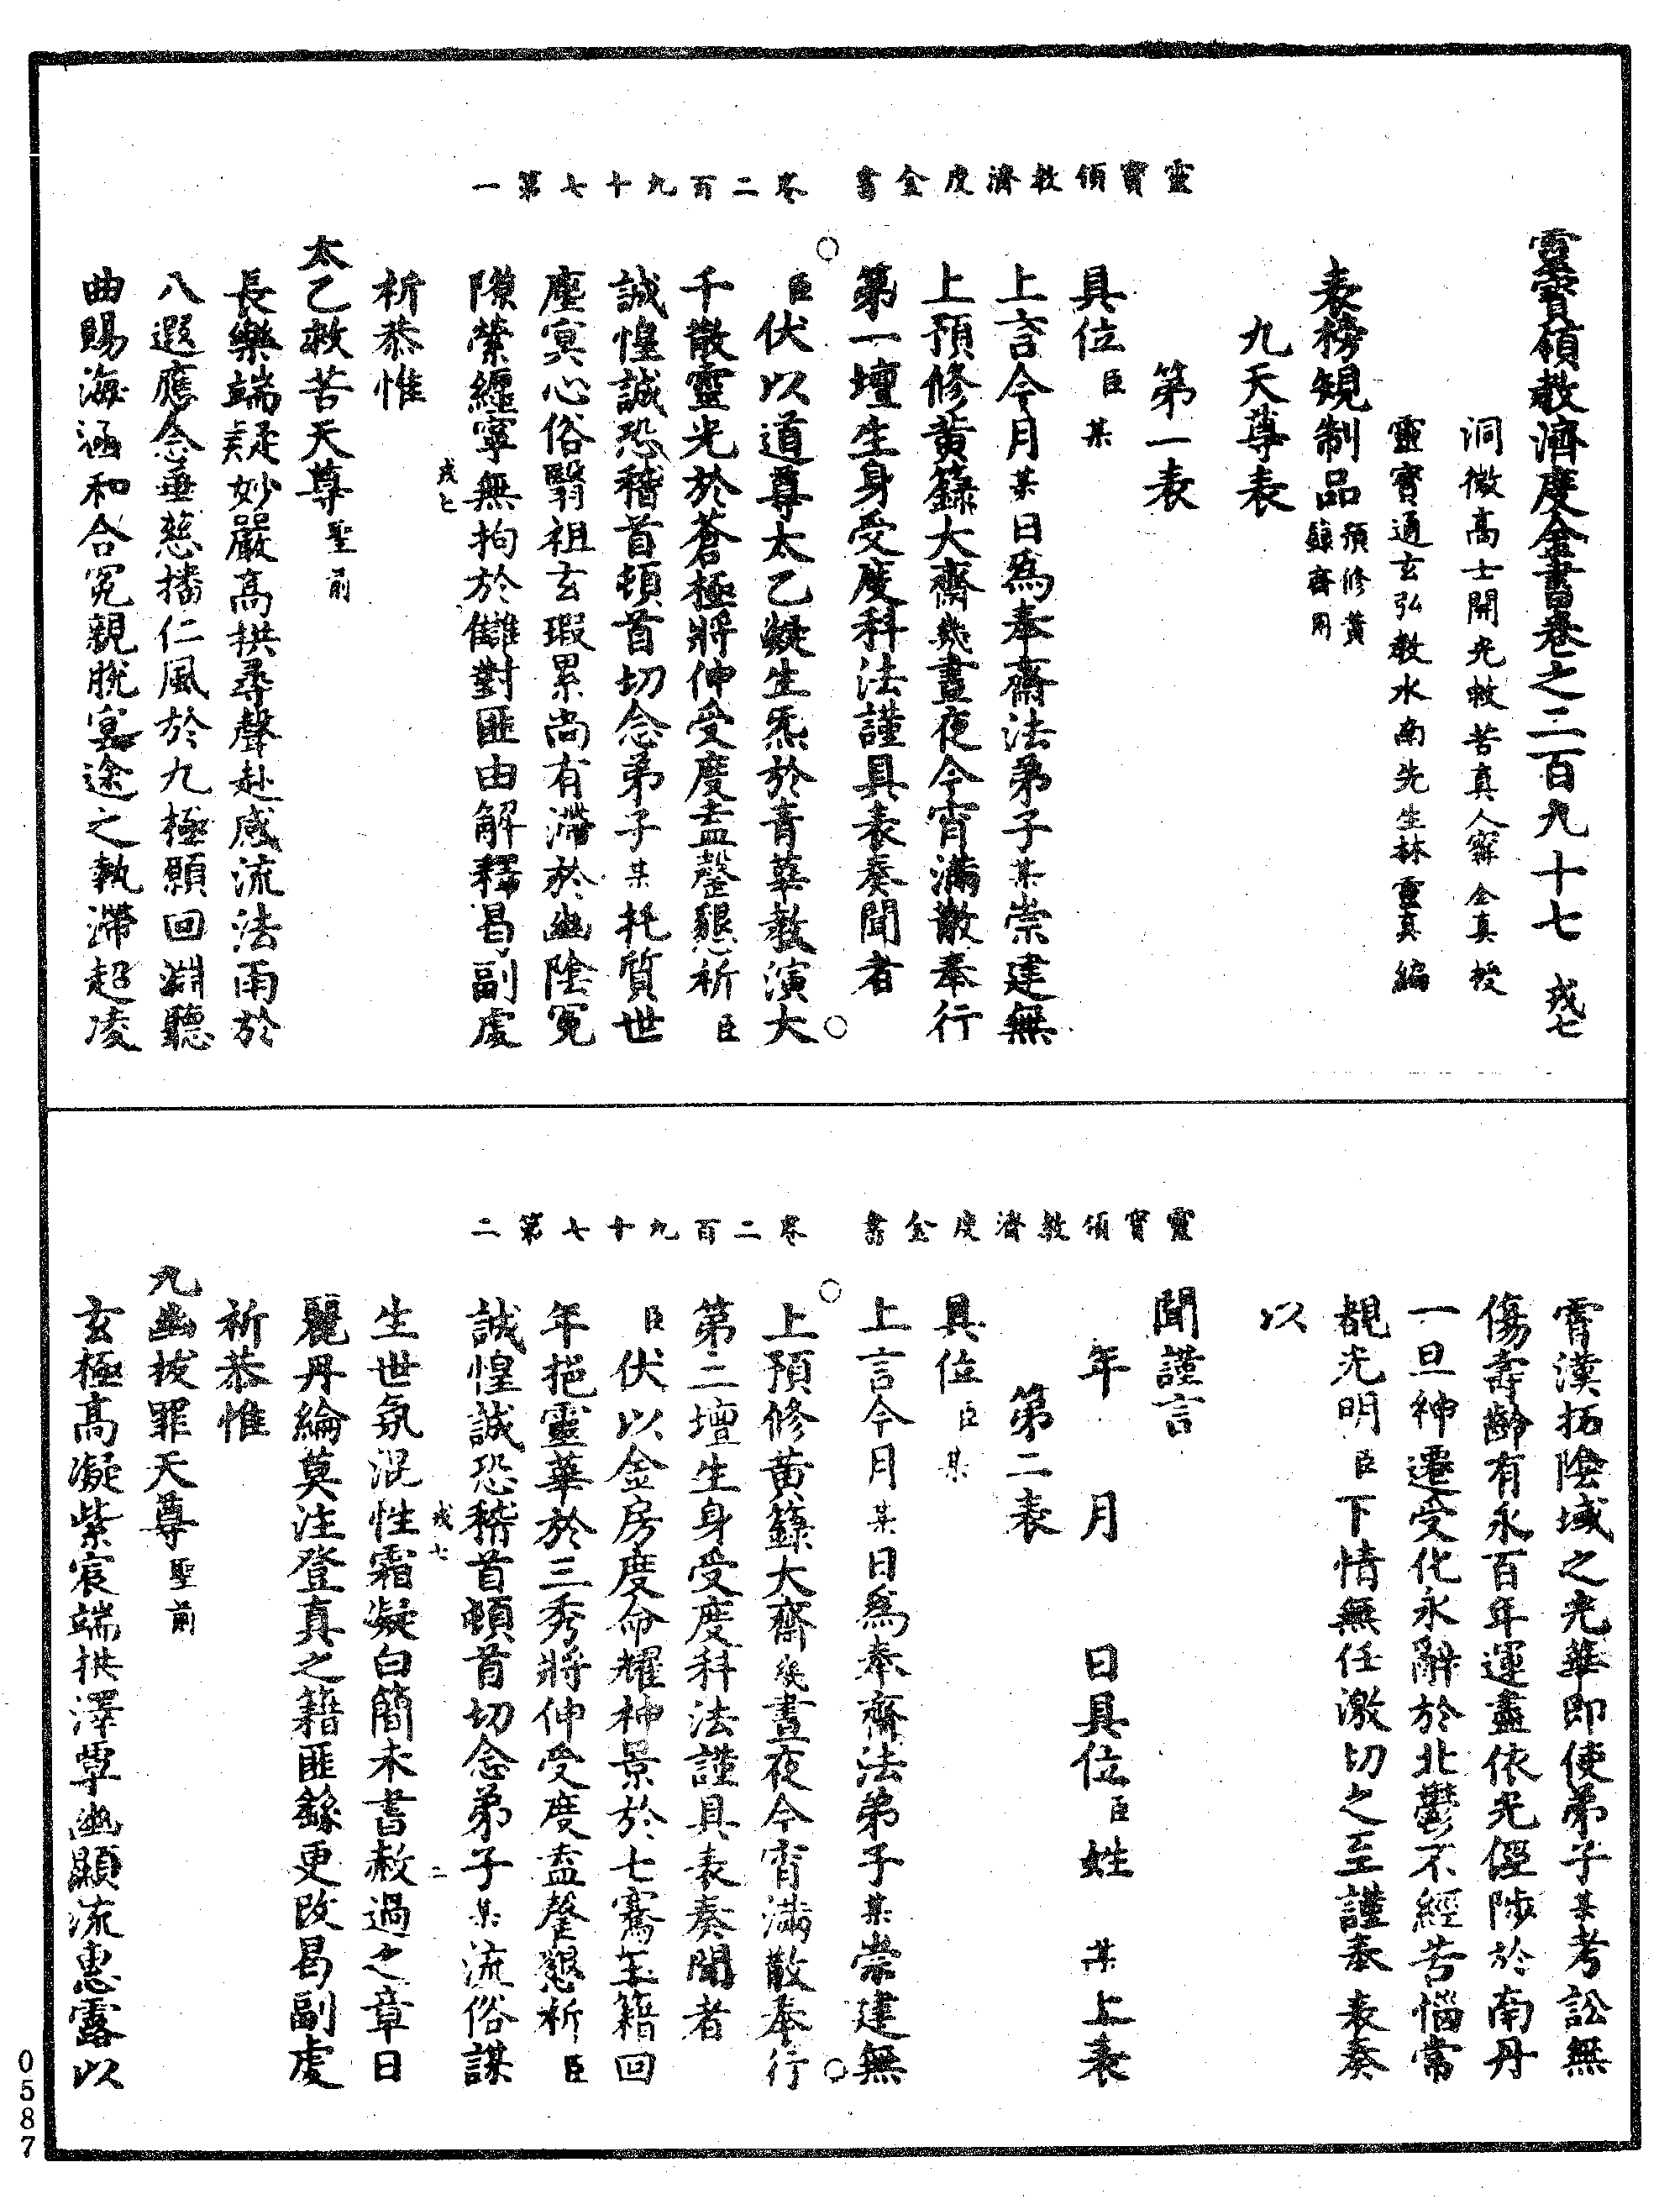 靈寶領教濟度金書 卷二百九十七第一
靈寶領教濟度金書卷之二百九十七 戎七
洞微高士開光救苦真人寗全真授
靈寶通玄弘教水南先生林靈真編
表榜規制品預修黃籙齋用
九天尊表
第一表
具位臣某
上言今月某日為奉齋法弟子某崇建無
上預修黃籙大齋幾晝夜今宵滿散奉行
第一壇生身受度科法謹具表奏聞者
臣伏以道尊太乙凝生炁於青華教演大
千散靈光於蒼極將伸受度盍罄懇祈臣
誠惶誠恐稽首頓首切念弟子某托質世
塵冥心俗翳祖玄瑕累尚有滯於幽陰冤
隙縈纏寧無拘於讎對匪由解釋曷副虔
祈恭惟
戎七
太乙救苦天尊聖前
長樂端疑妙嚴高拱尋聲赴感流法雨於
八遐應念垂慈播仁風於九極願回淵聽
曲賜海涵和合冤親脫冥途之執滯超凌
靈寶領教濟度金書 卷二百九十七第二
霄漢拓陰域之光華即使弟子某考訟無
傷壽齡有永百年運盡依光徑陟於南丹
一旦神遷受化永辭於北鬱不經苦惱常
覩光明臣下情無任激切之至謹奉表奏
以
聞謹言
年 月 日具位臣姓 某上表
第二表
具位臣某
上言今月某日為奉齋法弟子某崇建無
上預修黃籙大齋幾晝夜今宵滿散奉行
第二壇生身受度科法謹具表奏聞者
臣伏以金房度命耀神景於七騫玉籍回
年挹靈華於三秀將伸受度盍罄懇祈臣
誠惶誠恐稽首頓首切念弟子某流俗謀
戎七 二
生世氛混性霜凝白簡未書赦過之章日
麗丹綸莫注登真之籍匪繇更改曷副虔
祈恭惟
九幽拔罪天尊聖前
玄極高凝紫宸端拱澤覃幽顯流惠露以
0587